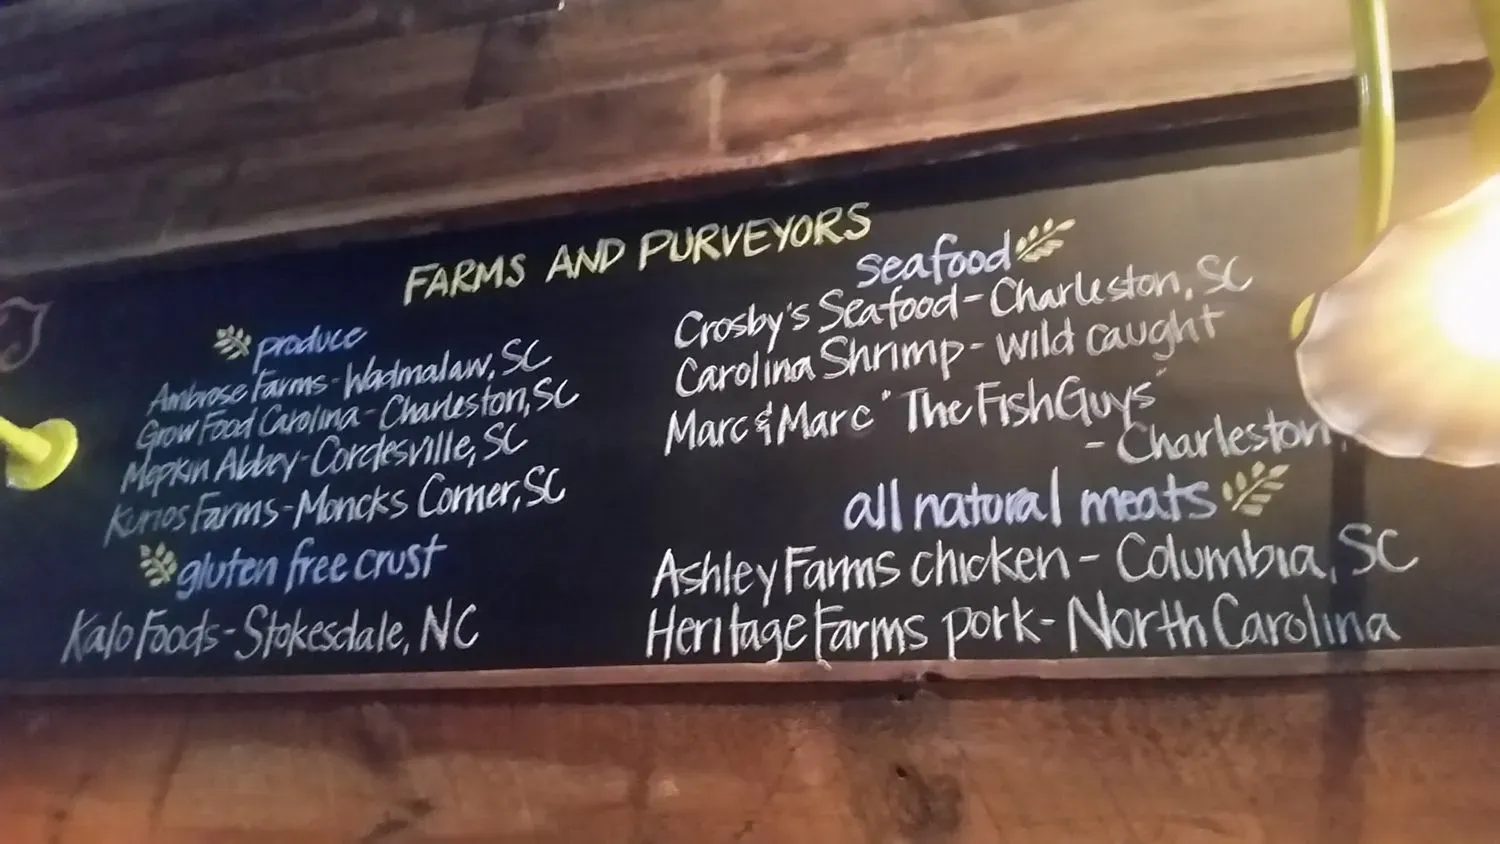 FARMS AND PURVEYORS
produce
Ambrose Farms - Wadmalaw, SC
Grow Food Carolina - Charleston, SC
Mepkin Abbey - Cordesville, SC
Kurios Farms - Moncks Corner, SC
gluten free crust
Kalo Foods - Stokesdale, NC
seafood
Crosby's Seafood - Charleston, SC
Carolina Shrimp - wild caught
Marc & Marc "The Fish Guys"
- Charleston,
all natural meats
Ashley Farms chicken - Columbia, SC
Heritage Farms pork - North Carolina